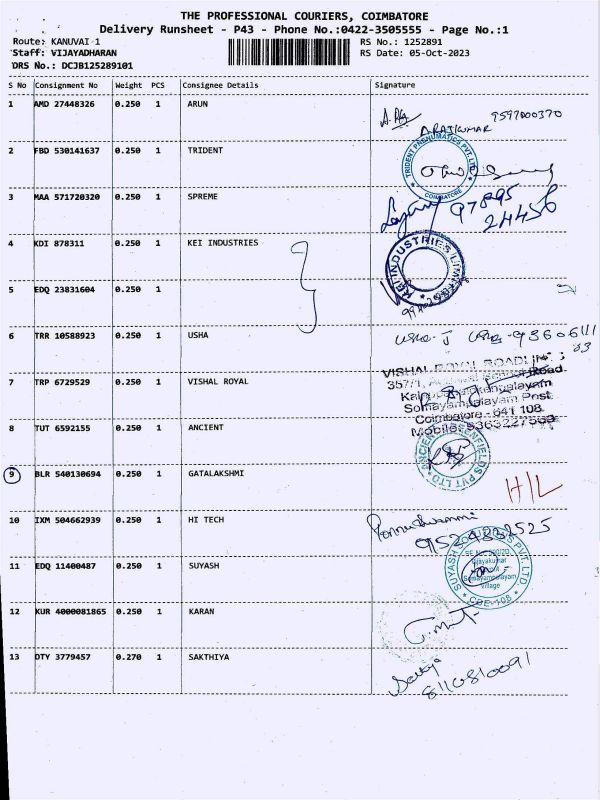 THE PROFESSIONAL COURIERS, COIMBATORE
Delivery Runsheet - P43 - Phone No.:0422-3505555 - Page No.:1
Route: KANUVAI 1 RS No.: 1252891
Staff: VIJAYADHARAN RS Date: 05-Oct-2023
DRS No.: DCJB125289101
S No Consignment No Weight PCS Consignee Details Signature
1 AMD 27448326 0.250 1 ARUN
9597000370
A RAJKUMAR
2 FBD 530141637 0.250 1 TRIDENT
TRIDENT PNEUMATICS PVT. LTD. COIMBATORE
3 MAA 571720320 0.250 1 SPREME
97895
24456
4 KDI 878311 0.250 1 KEI INDUSTRIES
KEI INDUSTRIES LIMITED
5 EDQ 23831604 0.250 1
6 TRR 10588923 0.250 1 USHA
Usha. J
VISHAL ROYAL ROADLINES
7 TRP 6729529 0.250 1 VISHAL ROYAL
357/1,
Somayampalayam Post
Coimbatore - 641 108.
8 TUT 6592155 0.250 1 ANCIENT
Mobile: 9363227569
ANCIENT GREENFIELDS PVT LTD
9 BLR 540130694 0.250 1 GATALAKSHMI
H/L
10 IXM 504662939 0.250 1 HI TECH
Ponnuswammi
9524832525
11 EDQ 11400487 0.250 1 SUYASH
SUYASH SOLUTIONS PVT. LTD.
Somayampalayam
Village
CBE-108
12 KUR 4000081865 0.250 1 KARAN
13 DTY 3779457 0.270 1 SAKTHIYA
8110810091